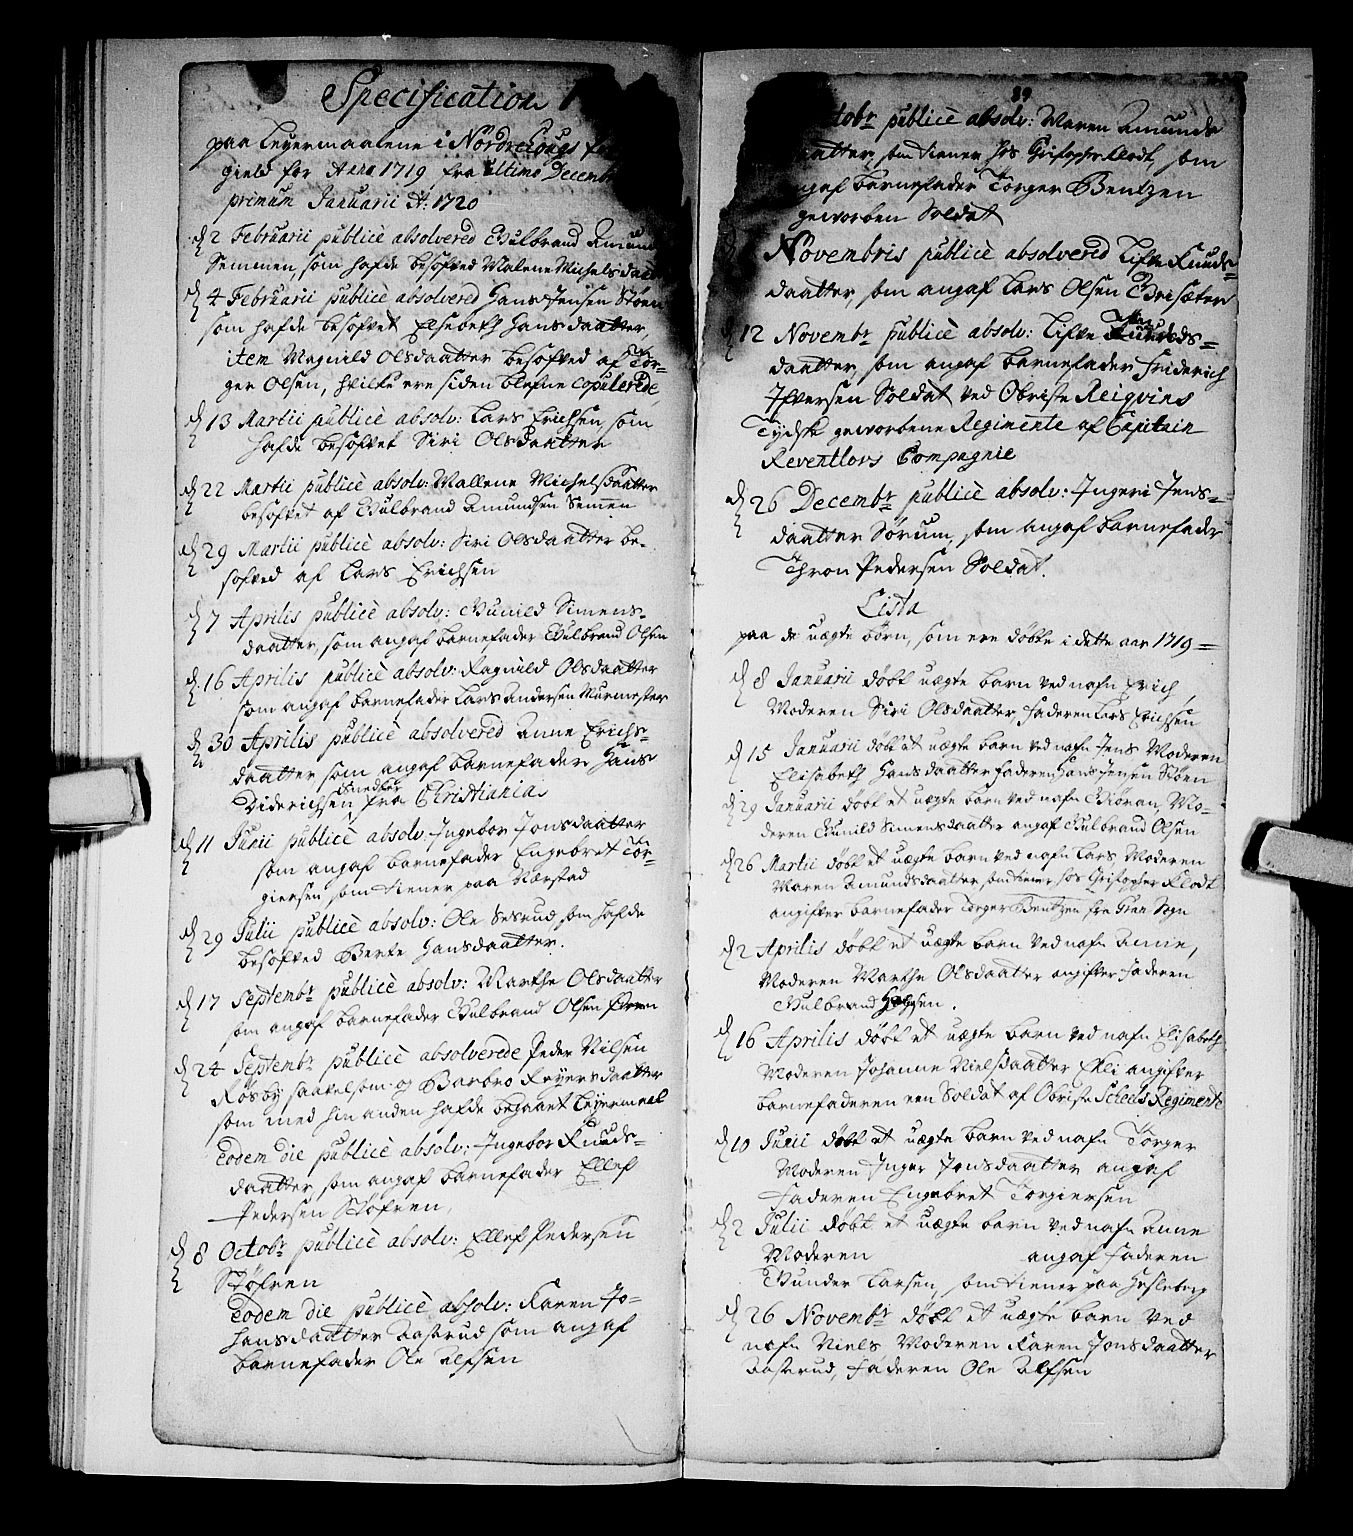 Specification
paa Leyermaalene i Nordrehougs
gield for Anno 1719 fra ultimo Decembr
primum Januarii A: 1720
d 2 Februarii publicè absolvered Gulbrand Amund
Semmen, som hafde besofved Malene Michelsdaat
d 4 Februarii publicè absolvered Hans Jensen Støen
som hafde besofvet Elsebeth Hansdaatter,
item Magnild Olsdaatter besofved af Tor=
ger Olsen, hvilke ere siden blefne copulerede,
d 13 Martii publicè absolv: Lars Erichsen, som
hafde besofvet Siri Olsdaatter
d 22 Martii publicè absolv: Mallene Michelsdaatter
besofvet af Gulbrand Amundsen Semmen
d 29 Martii publicè absolv: Siri Olsdaatter be-
sofved af Lars Erichsen
d 7 Aprilis publicè absolv: Gunild Simens-
daatter, som angaf barnefader Gulbrand Olsen
d. 16 Aprilis publicè absolv: Ragnild Olsdaatter
som angaf barnefader Lars Andersen Murmester
d 30 Aprilis publicè absolvered Anne Erichs-
daatter som angaf barnefader Hans
Diderichsen Snedker fra Christiania
d 11 Junii publicè absolv: Ingebor Jonsdaatter
som angaf barnefader Engebret Tor-
giersen som tiener paa Nærstad
d 29 Julii publicè absolv: Ole Sesrud som hafde
besofved Berte Hansdaatter.
d 17 Septembr publicè absolv: Marthe Olsdaatter
som angaf barnefader Gulbrand Olsen
d 24 Septembr publicè absolverede Peder Nilsen
Røsby saavelsom og Barbro Reyersdaatter
som med hin anden hafde begaaet Leyermaal
Eodem die publicè absolv: Ingebor Knuds-
daatter som angaf barnefader Ellef
Pedersen Støfren,
d 8 Octobr publicè absolv: Ellef Pedersen
Støfren
Eodem die publicè absolv: Karen Jo-
hansdaatter Aasrud som angaf
barnefader Ole Alfsen
89
tobr publicè absolv: Maren Amunds
daatter, som tiener hos Christopher Klodt, som
angaf barnefader Torger Bentzen
geworben Soldat
Novembris publicè absolvered Lisve Knuds=
daatter, som angaf Lars Olsen Brisæter
d 12 Novembr publicè absolv: Lisve
daatter, som angaf barnefader Friderich
Iffversen Soldat ved Obriste Reigvins
Tydske gevorbene Regimente af Capitain
Reventlovs Compagnie
d 26 Decembr publicè absolv: Ingeri Jens=
daatter Sørum, som angaf barnefader
Thron Pedersen Soldat.
Lista
paa de uægte børn, som ere døbte i dette aar 1719=
d 8 Januarii døbt uægte barn ved nafn Erich,
Moderen Siri Olsdaatter faderen Lars Erichsen
d 15 Januarii døbt et uægte barn ved nafn Jens Moderen
Elisabeth Hansdaatter faderen Hans Jensen Støen
d 29 Januarii døbt et uægte barn ved nafn Giøran, Mo-
deren Gunild Simensdaatter angaf Gulbrand Olsen
d 26 Martii døbt et uægte barn ved nafn Lars Moderen
Maren Amundsdaatter, som tiener hos Christopher Klodt
angifver barnefader Torger Bentzen fra Gran Sogn
d 2 Aprilis døbt et uægte barn ved nafn Anne,
Moderen Marthe Olsdaatter angifver faderen
Gulbrand .
d 16 Aprilis døbt et uægte barn ved nafn Elisabeth
Moderen Johanne Nielsdaatter Elli angifver
barnefaderen een Soldat af Obriste Scheels Regimente
d 10 Junii døbt et uægte barn ved nafn Torger
Moderen Inger Jonsdaatter angaf
faderen Engebret Torgiersen
d 2 Julii døbt et uægte barn ved nafn Anne
Moderen angaf faderen
Gunder Larsen, som tiener paa Hesleberg
d 26 Novembr døbt et uægte barn ved
nafn Niels Moderen Karen Jonsdaatter
Aasrud, faderen Ole Alfsen